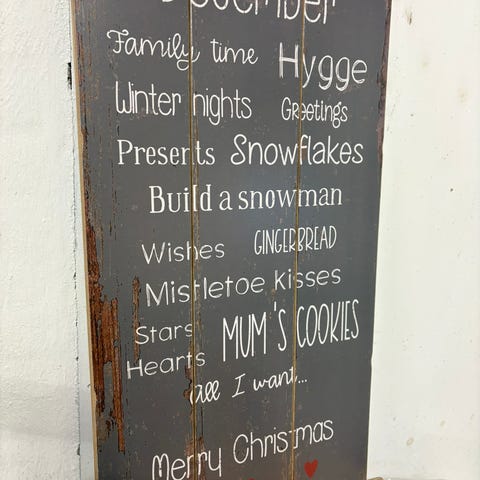 December
Family time Hygge
Winter nights Greetings
Presents Snowflakes
Build a snowman
Wishes GINGERBREAD
Mistletoe kisses
Stars MUM'S COOKIES
Hearts
all I want...
Merry Christmas